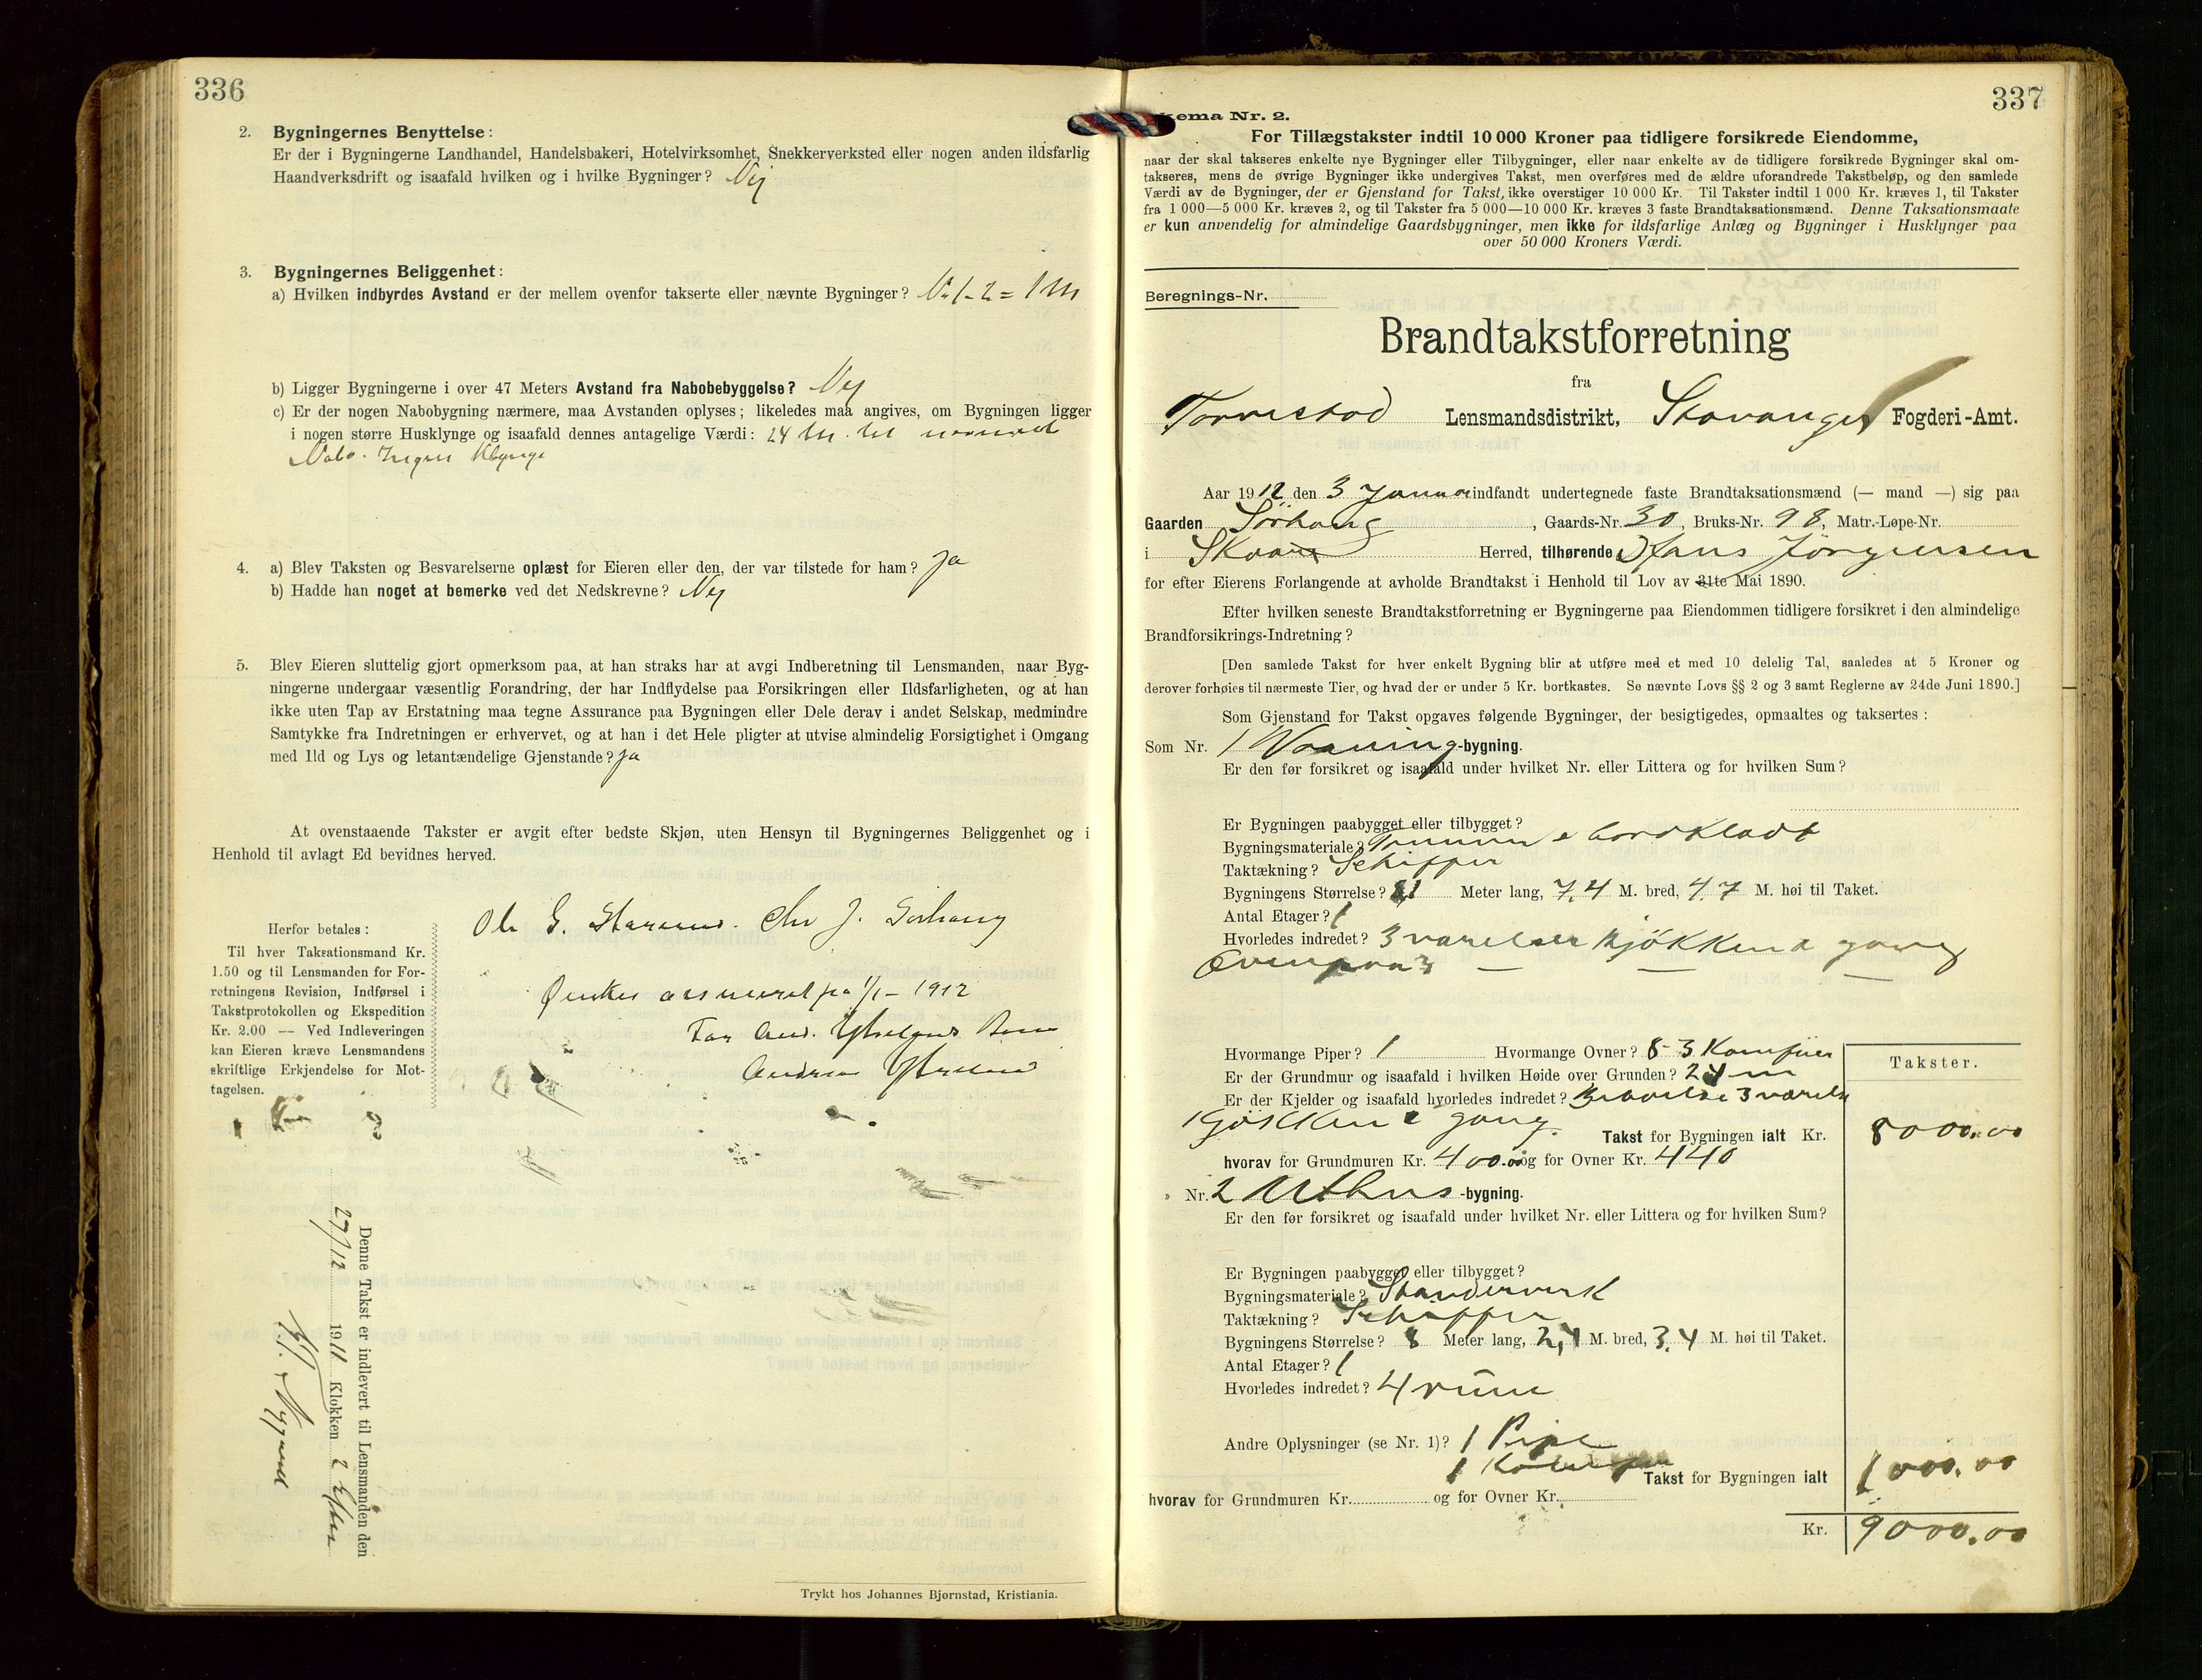 336
2. Bygningernes Benyttelse:
Er der i Bygningerne Landhandel, Handelsbakeri, Hotelvirksomhet, Snekkerverksted eller nogen anden ildsfarlig
Haandverksdrift og isaafald hvilken og i hvilke Bygninger? Nej
3. Bygningernes Beliggenhet:
a) Hvilken indbyrdes Avstand er der mellem ovenfor takserte eller nævnte Bygninger? No 1-2 = 1 M
b) Ligger Bygningerne i over 47 Meters Avstand fra Nabobebyggelse? Nej
c) Er der nogen Nabobygning nærmere, maa Avstanden oplyses; likeledes maa angives, om Bygningen ligger
i nogen større Husklynge og isaafald dennes antagelige Værdi: 24 M. til
Nabo. Ingen Klynge
4. a) Blev Taksten og Besvarelserne oplæst for Eieren eller den, der var tilstede for ham? Ja
b) Hadde han noget at bemerke ved det Nedskrevne? Nej
5. Blev Eieren sluttelig gjort opmerksom paa, at han straks har at avgi Indberetning til Lensmanden, naar Byg-
ningerne undergaar væsentlig Forandring, der har Indflydelse paa Forsikringen eller Ildsfarligheten, og at han
ikke uten Tap av Erstatning maa tegne Assurance paa Bygningen eller Dele derav i andet Selskap, medmindre
Samtykke fra Indretningen er erhvervet, og at han i det Hele pligter at utvise almindelig Forsigtighet i Omgang
med Ild og Lys og letantændelige Gjenstande? Ja
At ovenstaaende Takster er avgit efter bedste Skjøn, uten Hensyn til Bygningernes Beliggenhet og i
Henhold til avlagt Ed bevidnes herved.
Ole G. Chr J. Sørhaug
Ønskes assureret fra 1/1-1912
Herfor betales:
Til hver Taksationsmand Kr.
1.50 og til Lensmanden for For-
retningens Revision, Indførsel i
Takstprotokollen og Ekspedition
Kr. 2.00 — Ved Indleveringen
kan Eieren kræve Lensmandens
skriftlige Erkjendelse for Mot-
tagelsen.
Denne Takst er indlevert til Lensmanden den
29/12 1911 Klokken 2 Efter
Trykt hos Johannes Bjørnstad, Kristiania.
337
kema Nr. 2.
For Tillægstakster indtil 10 000 Kroner paa tidligere forsikrede Eiendomme,
naar der skal takseres enkelte nye Bygninger eller Tilbygninger, eller naar enkelte av de tidligere forsikrede Bygninger skal om-
takseres, mens de øvrige Bygninger ikke undergives Takst, men overføres med de ældre uforandrede Takstbeløp, og den samlede
Værdi av de Bygninger, der er Gjenstand for Takst, ikke overstiger 10 000 Kr. Til Takster indtil 1 000 Kr. kræves 1, til Takster
fra 1 000—5 000 Kr. kræves 2, og til Takster fra 5 000—10 000 Kr. kræves 3 faste Brandtaksationsmænd. Denne Taksationsmaate
er kun anvendelig for almindelige Gaardsbygninger, men ikke for ildsfarlige Anlæg og Bygninger i Husklynger paa
over 50 000 Kroners Værdi.
Beregnings-Nr.
Brandtakstforretning
fra
Torvestad Lensmandsdistrikt, Stavanger Fogderi-Amt.
Aar 1912 den 3 Januar indfandt undertegnede faste Brandtaksationsmænd (— mand —) sig paa
Gaarden Sørhaug, Gaards-Nr. 30, Bruks-Nr. 98, Matr.-Løpe-Nr.
i Skaare Herred, tilhørende Hans Jörgensen
for efter Eierens Forlangende at avholde Brandtakst i Henhold til Lov av 31te Mai 1890.
Efter hvilken seneste Brandtakstforretning er Bygningerne paa Eiendommen tidligere forsikret i den almindelige
Brandforsikrings-Indretning?
[Den samlede Takst for hver enkelt Bygning blir at utføre med et med 10 delelig Tal, saaledes at 5 Kroner og
derover forhøies til nærmeste Tier, og hvad der er under 5 Kr. bortkastes. Se nævnte Lovs §§ 2 og 3 samt Reglerne av 24de Juni 1890.]
Som Gjenstand for Takst opgaves følgende Bygninger, der besigtigedes, opmaaltes og taksertes:
Som Nr. 1 Vaaning-bygning.
Er den før forsikret og isaafald under hvilket Nr. eller Littera og for hvilken Sum?
Er Bygningen paabygget eller tilbygget?
Bygningsmateriale? Tømmer & bordklædt
Taktækning? Schiffer
Bygningens Størrelse? Meter lang, 7,4 M. bred, 4,7 M. høi til Taket.
Antal Etager? 1
Hvorledes indredet? 3 værelser kjökken & gang
Ovenpaa 3 — — —
Hvormange Piper? 1 Hvormange Ovner? 5 3 Komfuier
Er der Grundmur og isaafald i hvilken Høide over Grunden? 2,4 m
Er der Kjelder og isaafald hvorledes indredet? 3 værelse
kjökken & gang. Takst for Bygningen ialt Kr.
Takster.
8000.00
hvorav for Grundmuren Kr. 400.00 og for Ovner Kr. 440
» Nr. 2 Uthus-bygning.
Er den før forsikret og isaafald under hvilket Nr. eller Littera og for hvilken Sum?
Er Bygningen paabygget eller tilbygget?
Bygningsmateriale? Standerverk
Taktækning? Schiffer
Bygningens Størrelse? 8 Meter lang, 2,4 M. bred, 3,4 M. høi til Taket.
Antal Etager? 1
Hvorledes indredet? 4 rum
Andre Oplysninger (se Nr. 1)? 1 Pipe
1 Takst for Bygningen ialt 1000.00
hvorav for Grundmuren Kr. og for Ovner Kr.
Kr. 9000.00